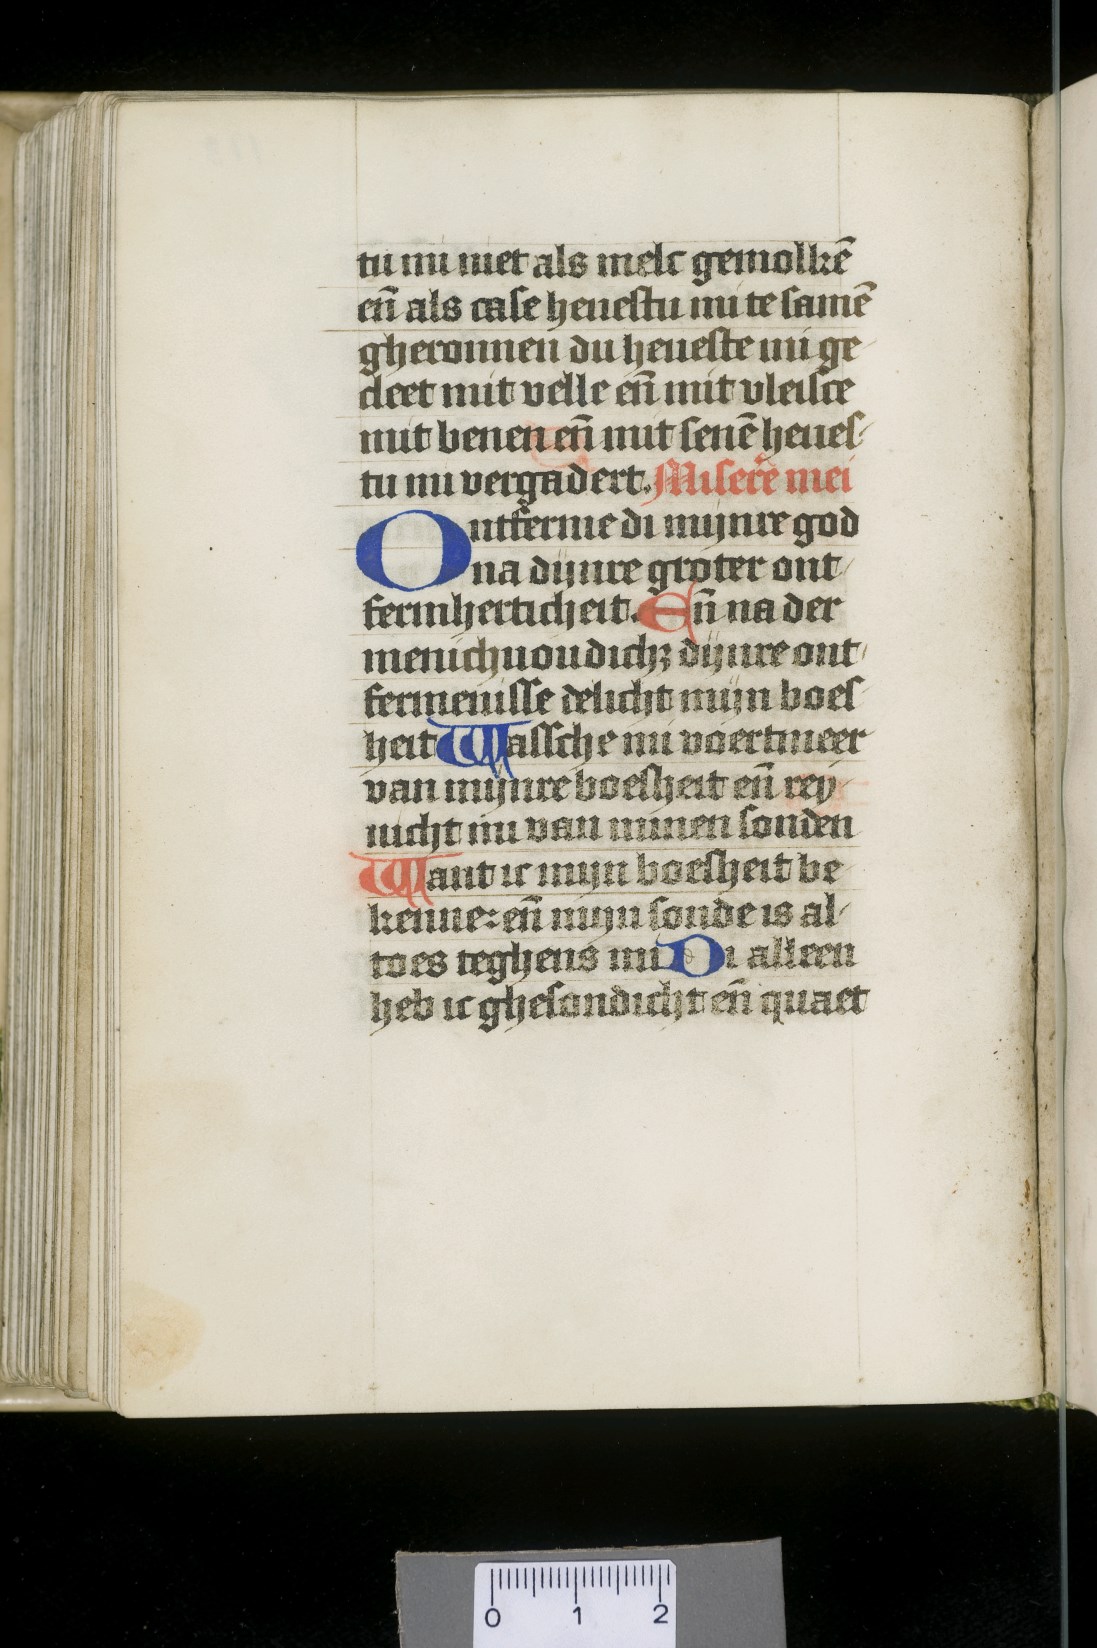 tu mi niet als melc gemolkē
eñ als case heuestu mi te samē
gheronnen du heueste mi ge
cleet mit velle eñ mit vleisce
mit benen eñ mit senē heues
tu mi vergadert. Miserē mei
Ontferme di mijnre god
na dijnre groter ont
fermherticheit. Eñ na der
menichuoudichꝫ dijnre ont
fermenisse delicht mijn boes
heit Wassche mi voertmeer
van mijnre boesheit eñ rey
nicht mi van minen sonden
Want ic mijn boesheit be
kenne: eñ mijn sonde is al
toes teghens mi Di alleen
heb ic ghesondicht eñ quaet
0 1 2